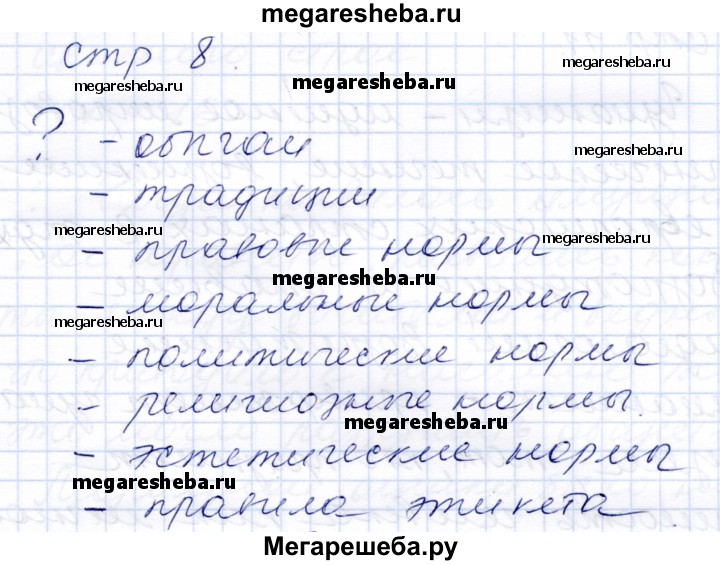 megaresheba.ru
стр 8.
megaresheba.ru
megaresheba.ru
megaresheba.ru
? - обычаи
megaresheba.ru
- традиции
megaresheba.ru
megaresheba.ru
- правовые нормы
megaresheba.ru
- моральные нормы
megaresheba.ru
- политические нормы
- религиозные нормы.
megaresheba.ru
- эстетические нормы
megaresheba.ru
- правила этикета
Мегарешеба.ру